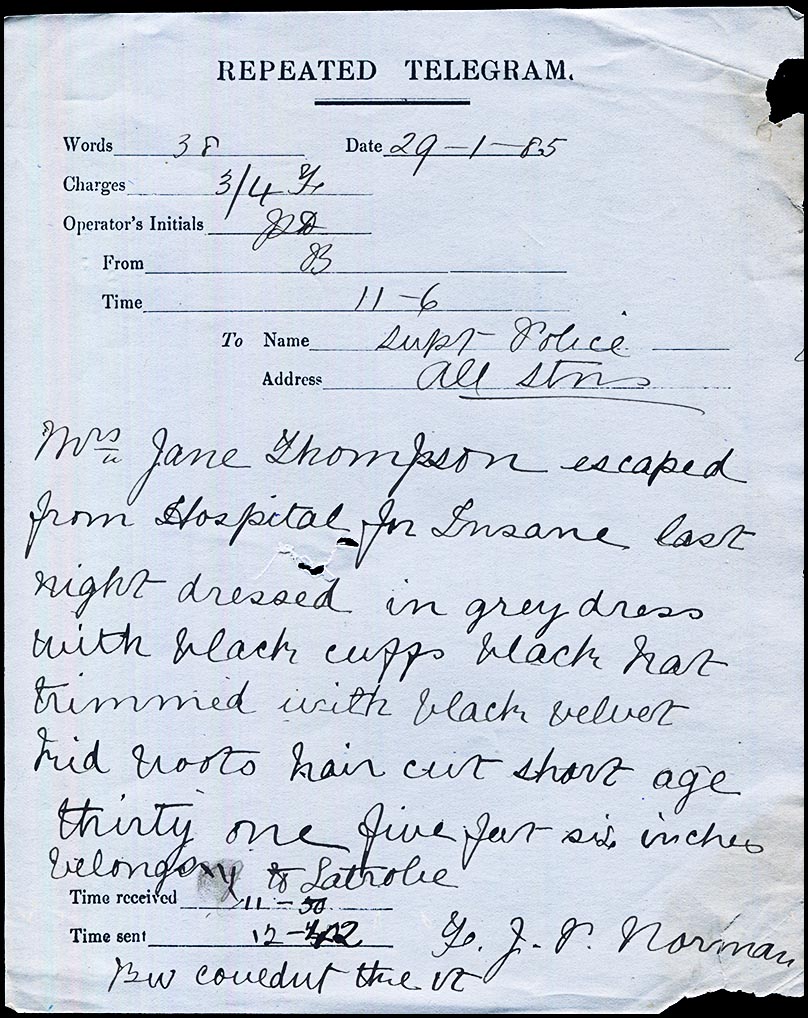 REPEATED TELEGRAM.
Words 38 Date 29-1-85
Charges 3/4
Operator's Initials
From B
Time 11-6
To Name Supt Police
Address All Stns
Mrs Jane Thompson escaped
from Hospital for Insane last
night dressed in grey dress
with black cuffs black hat
trimmed with black velvet
kid boots hair cut short age
thirty one five feet six inches
belongs to Latrobe
Time received 11-50
Time sent 12-
F. J. P. Norman
couldnt